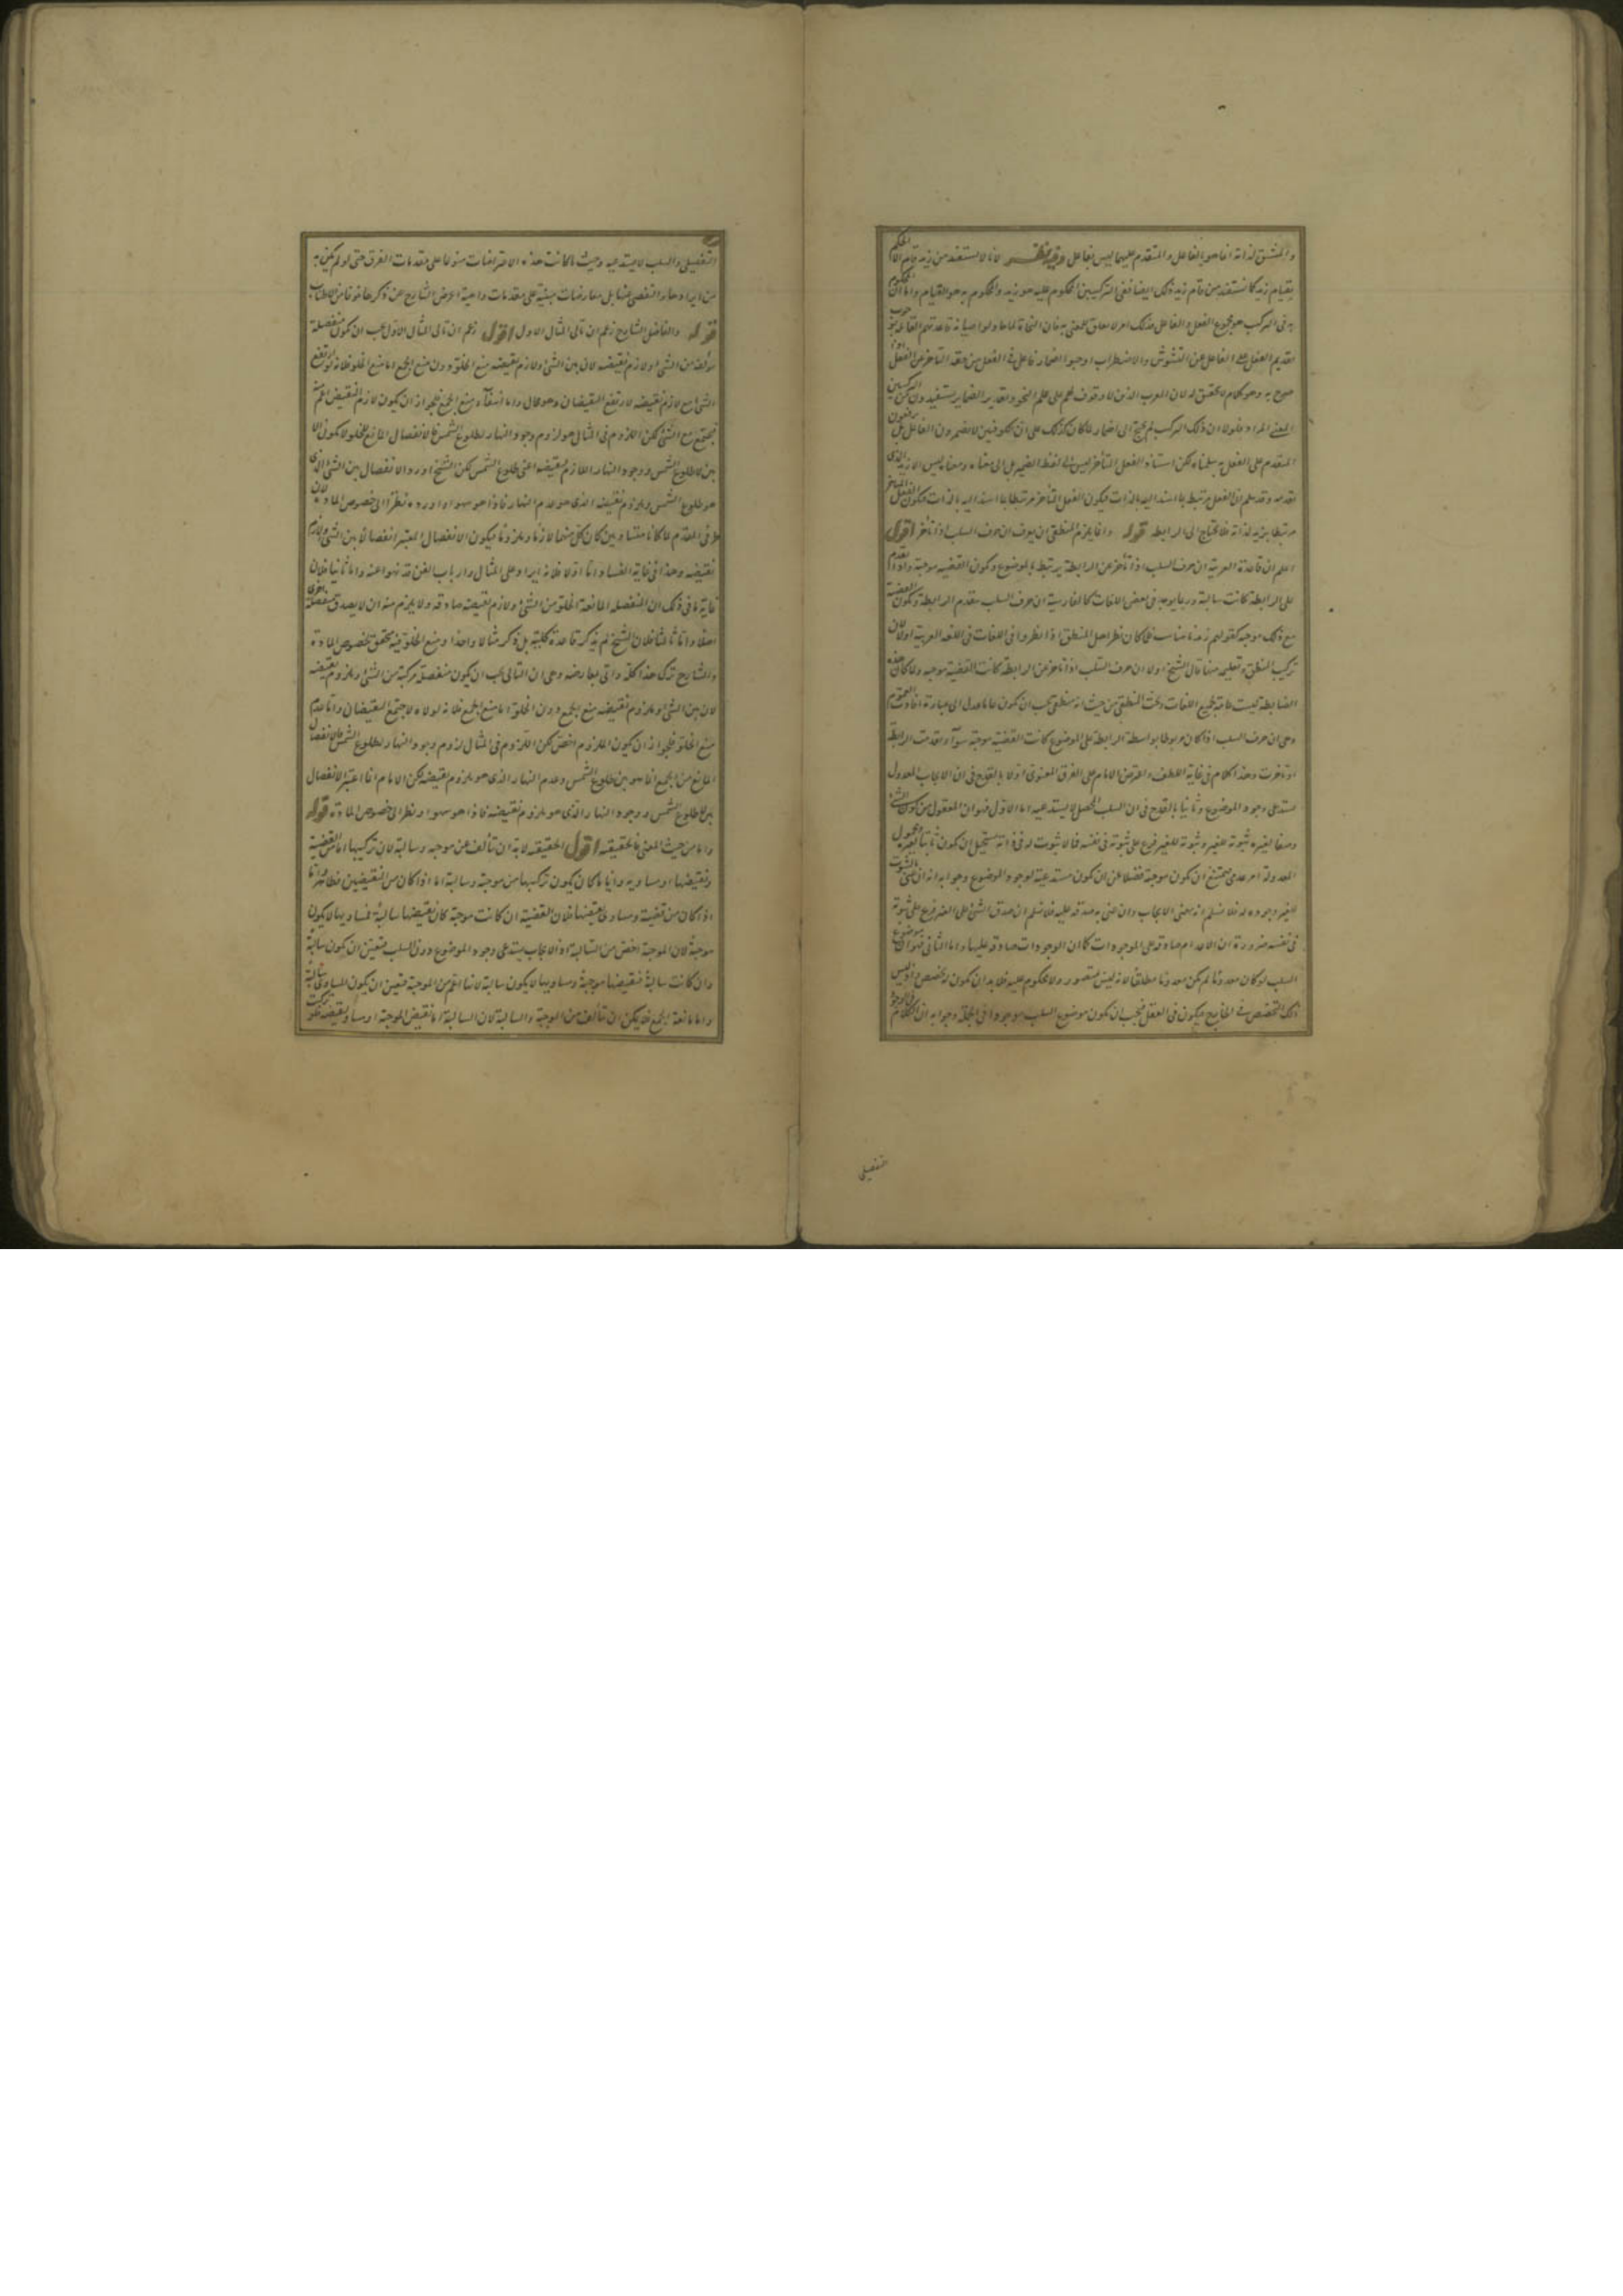 والمشتق لذاته انما هو بالفاعل والمتقدم عليهما ليس بفاعل وفيه نظر لانا لا نستفيد من زيد قام الا الحكم
بقيام زيد كما نستفيد من قام زيد ذلك ايضا ففي التركيبين المحكوم عليه هو زيد والمحكوم به هو القيام واما ان المحكوم
به في المركب هو مجموع الفعل والفاعل فذلك امر لا تعلق للمعنى به فان النحاة لما حاولوا صيانة قاعدتهم القائلة بوجوب
تقديم الفعل على الفاعل عن التشوش والاضطراب اوجبوا اضمار فاعل في الفعل
صرح به وهو كلام لا تحقق له لان العرب الذين لا وقوف لهم على علم النحو وتقدير الضماير يستفيدون من التركيبين
المعنى المراد فلولا ان ذلك المركب لم يحتج الى اضمار لما كان كذلك على ان الكوفيين لا يضمرون الفاعل بل يرفعون
المتقدم على الفعل به سلمناه لكن اسناد الفعل المتأخر ليس الى لفظ الضمير بل الى معناه ومعناه ليس الا زيد الذي
تقدمه وقد علم ان الفعل مرتبط بما اسند اليه بالذات فيكون الفعل المتأخر مرتبطا بما اسند اليه بالذات فيكون الفعل المتأخر
مرتبطا بزيد لذاته فلا يحتاج الى الرابطة قوله وانما يلزم المنطقي ان يعرف ان حرف السلب اذا تأخر اقول
اعلم ان قاعدة العربية ان حرف السلب اذا تأخر عن الرابطة يرتبط بالموضوع ويكون القضية موجبة واذا تقدم
على الرابطة كانت سالبة وربما يوجد في بعض اللغات كالفارسية ان حرف السلب مقدم الرابطة وتكون القضية
مع ذلك موجبة كقولهم زيد نا بيناست فلما كان نظر اهل المنطق اذا نظروا في اللغات في اللغة العربية اولا لان
تركيب المنطق وتعليمه منها قال الشيخ اولا ان حرف السلب اذا تأخر عن الرابطة كانت القضية موجبة ولما كان هذه
الضابطة ليست عامة لجميع اللغات وبحث المنطقي من حيث انه منطقي يجب ان يكون عاما عدل الى عبارة افادت العموم
وهي ان حرف السلب اذا كان مربوطا بواسطة الرابطة على الموضوع كانت القضية موجبة سواء تقدمت الرابطة
او تأخرت وهذا كلام في غاية اللطف واعترض الامام على الفرق المعنوي اولا بالقدح في ان الايجاب المعدول
يستدعي وجود الموضوع وثانيا بالقدح في ان السلب المحصل لا يستدعيه اما الاول فهو ان المعقول من كون الشيء
وصفا لغيره ثبوته لغيره وثبوته للغير فرع على ثبوته في نفسه فما لا ثبوت له في ذاته يستحيل ان يكون ثابتا لغيره ومحمول
المعدولة امر عدمي فيمتنع ان يكون موجبة فضلا عن ان يكون مستدعية لوجود الموضوع وجوابه انه ان عنى بالثبوت
للغير وجوده له فلا نسلم انه معنى الايجاب وان عنى به صدقه عليه فلا نسلم ان صدق الشيء على الغير فرع على ثبوته
في نفسه ضرورة ان الاعدام صادقة على الموجودات كما ان الوجودات صادقة عليها واما الثاني فهو ان موضوع
السلب لو كان معدوما لم يكن معدوما مطلقا لانه ليس متصور ولا محكوم عليه فلا بد ان يكون له تخصص واذ ليس
ذلك التخصص في الخارج فيكون في العقل فيجب ان يكون موضوع السلب موجودا في الجملة وجوابه ان الكلام
تفصيلي
التفصيلي والسلب لا يستدعيه وحيث ما كانت هذه الاعتراضات منوعا على مقدمات الفرق حتى لو لم يكن به
من ايرادها والتفصي مقابل معارضات مبنية على مقدمات واهية اعرض الشارح عن ذكرها خوفا من الاطناب
قوله والفاضل الشارح زعم ان تالي المثال الاول اقول زعم ان تالي المثال الاول يجب ان يكون منفصلة
مؤلفة من الشيء ولازم نقيضه لان بين الشيء ولازم نقيضه منع الخلو دون منع الجمع اما منع الخلو فلانه لو ارتفع
الشيء مع لازم نقيضه لارتفع النقيضان وهو محال واما انتفاء منع الجمع فلجواز ان يكون لازم النقيض اعم
فيجتمع مع الشيء لكن اللازم في المثال هو لزوم وجود النهار لطلوع الشمس فالانفصال المانع للخلو لا يكون الا
بين لا طلوع الشمس ووجود النهار اللازم لنقيضه اعني طلوع الشمس لكن الشيخ اورد الانفصال بين الشيء الذي
هو طلوع الشمس وملزوم نقيضه الذي هو عدم النهار فاذا هو سهو او اورده نظرا الى خصوص المادة لان
طرفي المقدم لما كانا متساويين كان كل منهما لازما وملزوما فيكون الانفصال المعتبر انفصالا بين الشيء ولازم
نقيضه وهذا في غاية الفساد اما اولا فلانه ايراد على المثال وارباب الفن قد نهوا عنه واما ثانيا فلان
غاية ما في ذلك ان المنفصلة المانعة الخلو من الشيء ولازم نقيضه صادقة ولا يلزم منه ان لا يصدق منفصلة اخرى
اصلا واما ثالثا فلان الشيخ لم يذكر قاعدة كلية بل ذكر مثالا واحدا ومنع الخلو فيه يتحقق لخصوص المادة
والشارح ترك هذا كله واتى بمعارضه وهي ان التالي يجب ان يكون منفصلة مركبة من الشيء وملزوم نقيضه
لان بين الشيء وملزوم نقيضه منع الجمع دون الخلو اما منع الجمع فلانه لولاه لاجتمع النقيضان واما عدم
منع الخلو فلجواز ان يكون الملزوم اخص لكن اللزوم في المثال لزوم وجود النهار لطلوع الشمس فالانفصال
المانع من الجمع انما هو بين طلوع الشمس وعدم النهار الذي هو ملزوم نقيضه لكن الامام انما اعتبر الانفصال
بين لا طلوع الشمس ووجود النهار الذي هو ملزوم نقيضه فاذا هو سهو او نظر الى خصوص المادة قوله
واما من حيث المعنى فالحقيقية اقول الحقيقية لا بد ان تتألف من موجبة وسالبة لان تركيبها اما من القضية
ونقيضها او مساويه وايا ما كان يكون تركيبها من موجبة وسالبة اما اذا كان من النقيضين فظاهر واما
اذا كان من قضية ومساوي نقيضها فلان القضية ان كانت موجبة كان نقيضها سالبة فمساويها لا يكون
موجبة لان الموجبة اخص من السالبة اذ الايجاب يستدعي وجود الموضوع دون السلب فتعين ان يكون سالبة
وان كانت سالبة فنقيضها موجبة ومساويها لا يكون سالبة لانها اعم من الموجبة فتعين ان يكون المساوي
واما مانعة الجمع فلا يمكن ان تتألف من الموجبة والسالبة لان السالبة اما نقيض الموجبة او مساو لنقيضه فلو تركبت